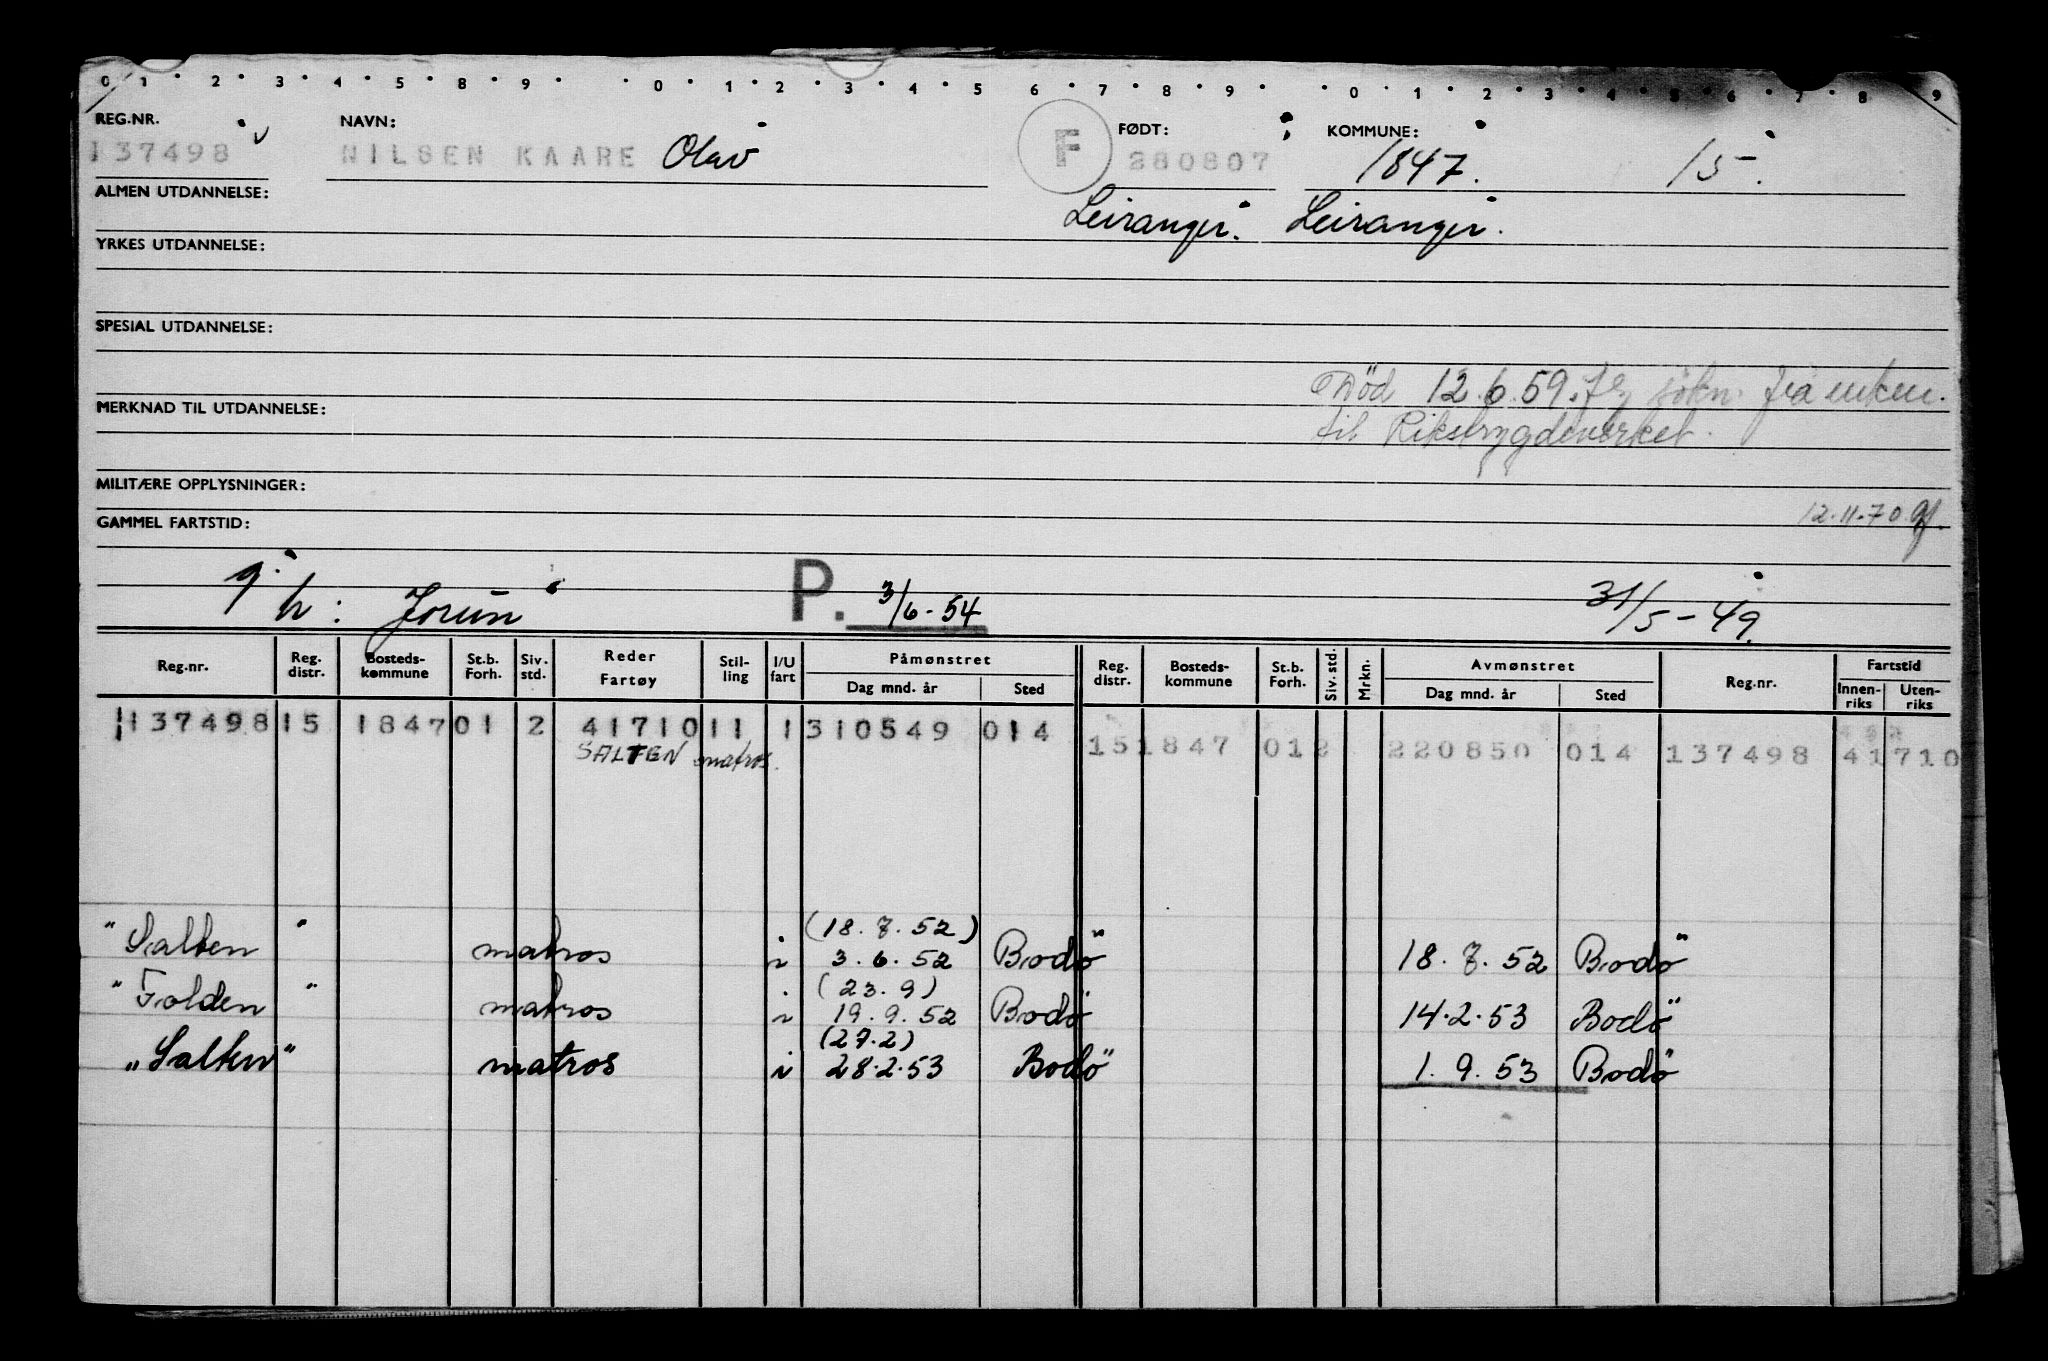 0 1 2 3 4 5 8 9 0 1 2 3 4 5 6 7 8 9 0 1 2 3 4 5 6 7 8 9
REG.NR. NAVN: FØDT: KOMMUNE:
137498 NILSEN KAARE Olav F 280807 1847. 15.
ALMEN UTDANNELSE: Leiranger. Leiranger.
YRKES UTDANNELSE:
SPESIAL UTDANNELSE:
Död 12.6.59. flg søkn. fra enken.
MERKNAD TIL UTDANNELSE:
til Rikstrygdeverket.
MILITÆRE OPPLYSNINGER:
12.11.70
GAMMEL FARTSTID:
g. h: Jorun P. 3/6-54 31/5-49.
Reg.nr. Reg. distr. Bosteds- kommune St.b. Forh. Siv. std. Reder Fartøy Stil- ling I/U fart Påmønstret Dag mnd. år Sted Reg. distr. Bosteds- kommune St.b. Forh. Siv. std. Mrkn. Avmønstret Dag mnd. år Sted Reg.nr. Fartstid Innen- riks Uten- riks
137498 15 1847 01 2 41710 11 1 310549 014
SALTEN matros. 15 1847 012 220850 014 137498 41710
(18.7.52)
"Salten" matros i 3.6.52 Bodö 18.7.52 Bodö
(23.9)
"Folden" matros i 19.9.52 Bodö 14.2.53 Bodö
(27.2)
"Salten" matros i 28.2.53 Bodö 1.9.53 Bodö